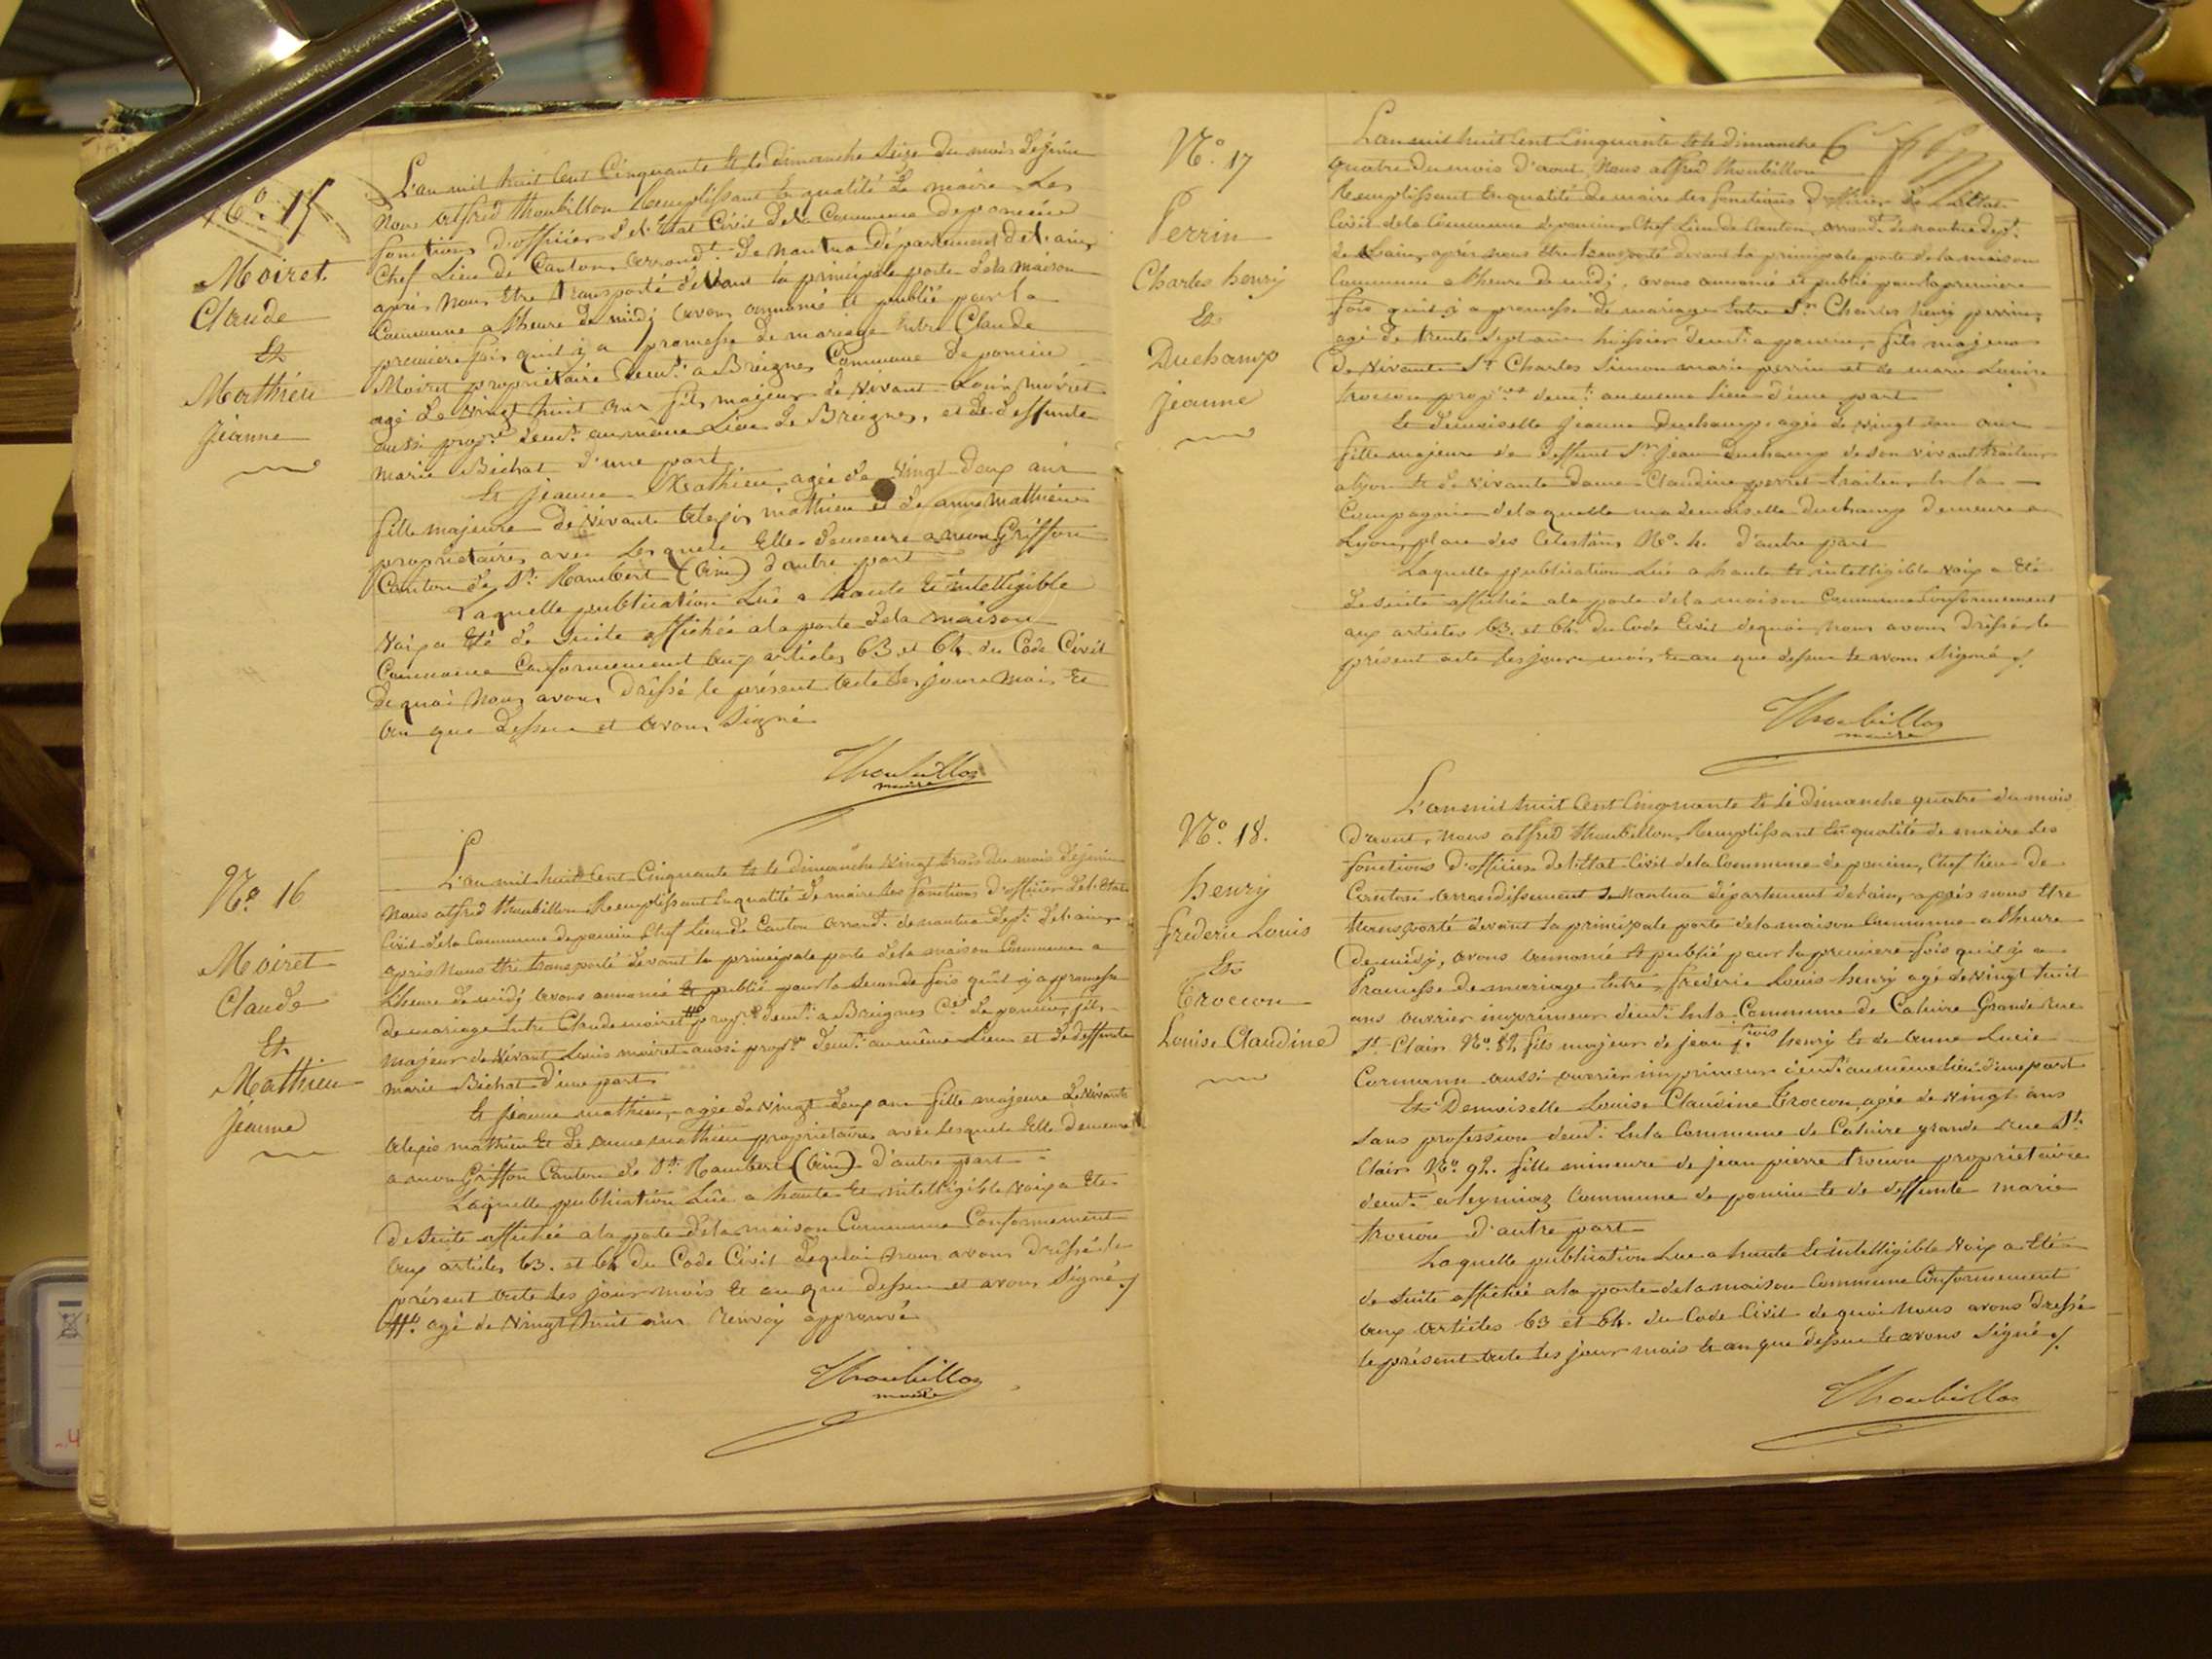 N.o 15
Moiret
Claude
Et
Mathieu
jeanne
L'an mil huit Cent Cinquante Et le dimanche Seize du mois de juin
Nous alfred thoubillon Remplissant En qualité de maire Les
fonctions d'officier de l'Etat Civil de la Commune de poncin
Chef Lieu de Canton, arrond.t de nantua département de l'ain,
après nous Etre transporté devant la principale porte de la maison
Commune a l'heure de midi avons annoncé Et publié pour la
premiere fois qu'il y a promesse de mariage Entre Claude
Moiret propriétaire demt. a Breignes Commune de poncin
agé de vingt huit ans fils majeur de vivant Louis moiret
aussi propre. demt. au même Lieu de Breignes, et de deffunte
marie Bichat d'une part
Et jeanne Mathieu agée de vingt deux ans
fille majeure de vivants alexis mathieu et de anne mathieu
propriétaires avec Lesquels Elle demeure a mon Griffon
Canton de St. Rambert (ain) d'autre part
Laquelle publication Lue a haute Et intelligible
Voix a Eté de suite affichée a la porte de la maison
Commune Conformement aux articles 63 et 64 du Code Civil
de quoi nous avons dressé le présent acte Les jour mois Et
an que dessus et avons signé
Thoubillon
maire
N.o 16
Moiret
Claude
Et
Mathieu
Jeanne
L'an mil huit Cent Cinquante Et le dimanche vingt trois du mois de juin
nous alfred thoubillon Remplissant En qualité de maire les fonctions d'officier de l'Etat
Civil de la Commune de poncin Chef Lieu de Canton arrond.t de nantua dept. de l'ain,
après nous Etre transporté devant la principale porte de la maison Commune a
L'heure de midi avons annoncé Et publié pour la seconde fois qu'il y a promesse
de mariage Entre Claude moiret # propre. demt. a Breignes Cne. de poncin, fils
majeur de vivant Louis moiret aussi propre. demt. au même Lieu et de deffunte
marie Bichat d'une part
Et jeanne mathieu, agée de vingt deux ans fille majeure de vivants
alexis mathieu Et de anne mathieu propriétaires avec lesquels Elle demeure
a mon Griffon Canton de St. Rambert (ain) d'autre part
Laquelle publication Lue a haute Et intelligible voix a Eté
de suite affichée a la porte de la maison Commune Conformement
aux articles 63. et 64 du Code Civil de quoi nous avons dressé le
présent acte Les jour mois Et an que dessus et avons signé /
# agé de vingt huit ans Renvoi approuvé
Thoubillon
maire
N.o 17
Perrin
Charles henry
Et
Duchamp
jeanne
L'an mil huit Cent Cinquante Et le dimanche
quatre du mois d'aout, Nous alfred thoubillon
Remplissant En qualité de maire les fonctions d'officier de l'Etat
Civil de la Commune de poncin, Chef Lieu de Canton, arrondt. de nantua dept.
de l'ain, après nous Etre transporté devant la principale porte de la maison
Commune a l'heure de midi, avons annoncé et publié pour la premiere
fois qu'il y a promesse de mariage Entre Sr. Charles henry perrin,
agé de trente sept ans huissier demt. a poncin, fils majeur
De vivants Sr. Charles Simon marie perrin et de marie Louise
propres. demt. au même lieu d'une part
Et demoiselle Jeanne Duchamp, agée de vingt un ans
fille majeure de deffunt Sr. Jean Duchamp de son vivant traiteur
a lyon Et de vivante Dame Claudine perret traiteur En la
Compagnie de laquelle mademoiselle duchamp demeure a
Lyon, place des Celestins No. 4. d'autre part
Laquelle publication Lue a haute Et intelligible voix a Eté
de suite affichée a la porte de la maison Commune Conformement
aux articles 63. et 64. du Code Civil de quoi nous avons dressé le
présent acte les jour mois Et an que dessus Et avons signé /.
Thoubillon
maire
N.o 18.
henry
frederic Louis
Et
Troccon
Louise Claudine
L'an mil huit Cent Cinquante Et le dimanche quatre du mois
d'aout, nous alfred thoubillon, Remplissant En qualité de maire les
fonctions d'officier de l'Etat Civil de la Commune de poncin, Chef lieu de
Canton arrondissement de Nantua département de l'ain, après nous Etre
transporté devant la principale porte de la maison Commune a l'heure
de midi, avons annoncé Et publié pour la premiere fois qu'il y a
Promesse de mariage Entre frederic Louis henry agé de vingt huit
ans ouvrier imprimeur demt. En la Commune de Caluire Grande Rue
St. Clair No. 92, fils majeur de jean f.çois henry Et de anne Lucie
Cormann aussi ouvrier imprimeur demt. au même lieu d'une part
Et Demoiselle Louise Claudine Troccon, agée de vingt ans
sans profession demt. En la Commune de Caluire grande rue St.
Clair No. 92. fille mineure de jean pierre troccon propriétaire
demt. a leymiaz Commune de poncin Et de deffunte marie
troccon d'autre part
Laquelle publication Lue a haute Et intelligible voix a Eté
de suite affichée a la porte de la maison Commune Conformement
aux articles 63 et 64. du Code Civil de quoi nous avons dressé
le présent acte les jour mois Et an que dessus Et avons signé /.
Thoubillon